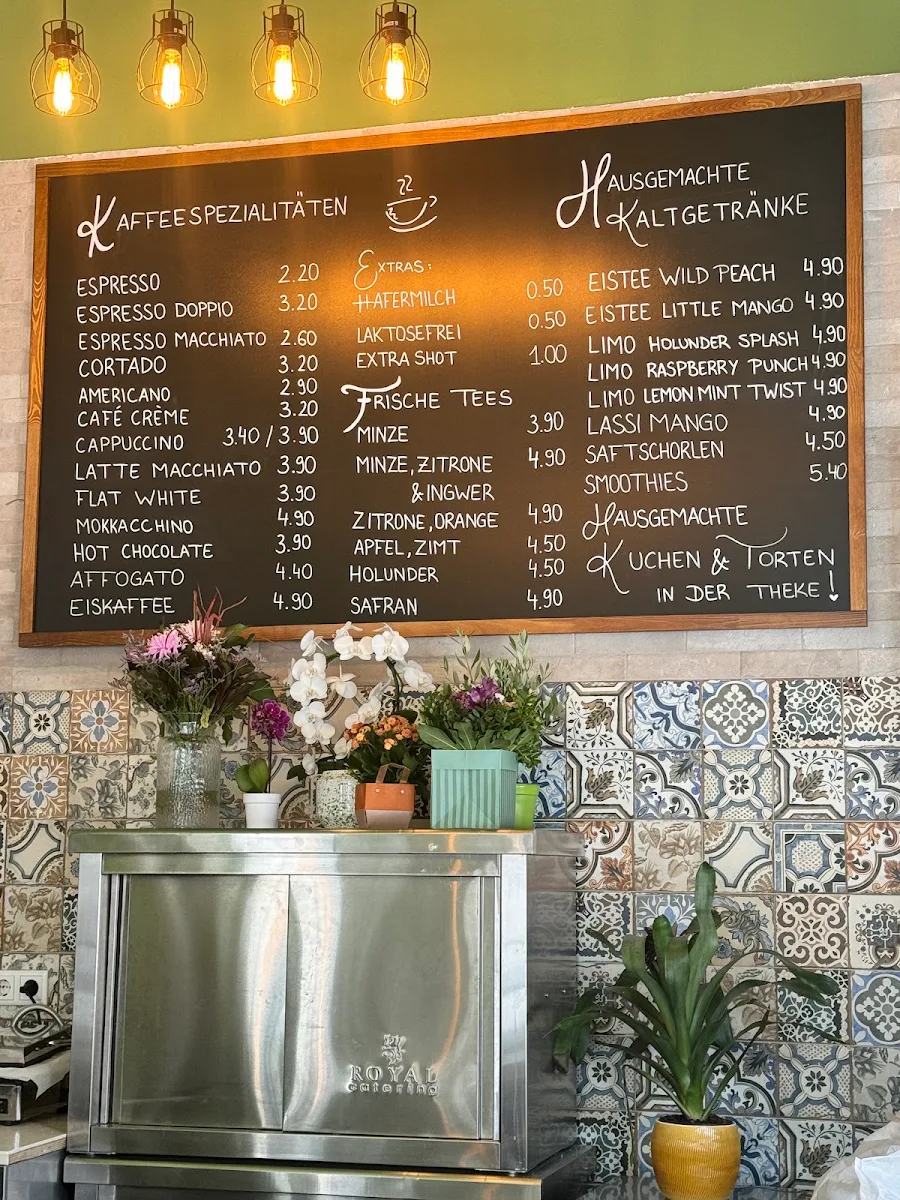 KAFFEESPEZIALITÄTEN
ESPRESSO 2.20
ESPRESSO DOPPIO 3.20
ESPRESSO MACCHIATO 2.60
CORTADO 3.20
AMERICANO 2.90
CAFÉ CRÈME 3.20
CAPPUCCINO 3.40 / 3.90
LATTE MACCHIATO 3.90
FLAT WHITE 3.90
MOKKACCHINO 4.90
HOT CHOCOLATE 3.90
AFFOGATO 4.40
EISKAFFEE 4.90
EXTRAS:
HAFERMILCH 0.50
LAKTOSEFREI 0.50
EXTRA SHOT 1.00
FRISCHE TEES
MINZE 3.90
MINZE, ZITRONE 4.90
& INGWER
ZITRONE, ORANGE 4.90
APFEL, ZIMT 4.50
HOLUNDER 4.50
SAFRAN 4.90
HAUSGEMACHTE
KALTGETRÄNKE
EISTEE WILD PEACH 4.90
EISTEE LITTLE MANGO 4.90
LIMO HOLUNDER SPLASH 4.90
LIMO RASPBERRY PUNCH 4.90
LIMO LEMON MINT TWIST 4.90
LASSI MANGO 4.90
SAFTSCHORLEN 4.50
SMOOTHIES 5.40
HAUSGEMACHTE
KUCHEN & TORTEN
IN DER THEKE!
ROYAL
catering